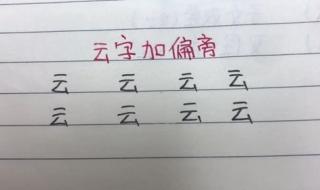 云字加偏旁
云 云 云 云
云 云 云 云